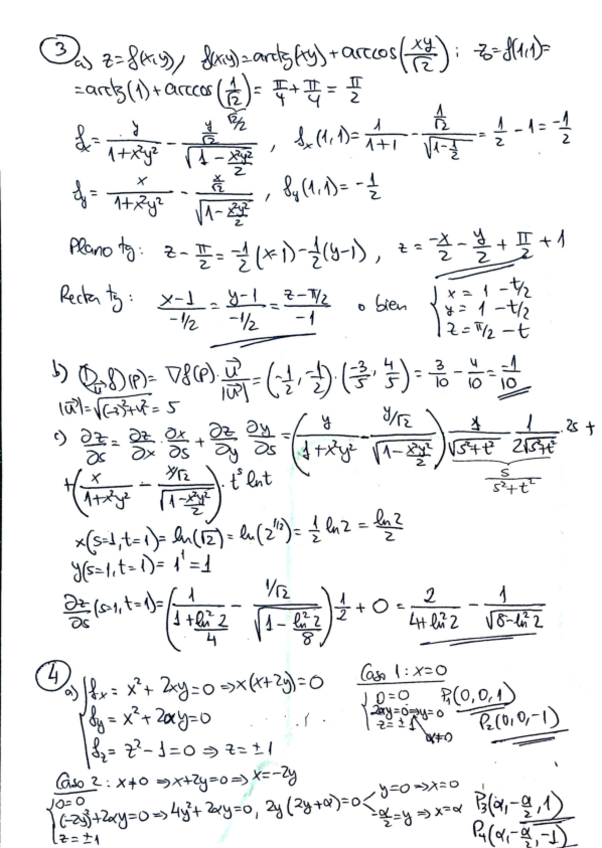 ③ a) z=f(x,y), f(x,y)=arctg(xy)+arccos(xy/√2); z₀=f(1,1)=
=arctg(1)+arccos(1/√2)= π/4+π/4= π/2
√2/2
fx= y/(1+x²y²) - (y/√2)/√(1-x²y²/2) , fx(1,1)= 1/(1+1) - (1/√2)/√(1-1/2) = 1/2 - 1 = -1/2
fy= x/(1+x²y²) - (x/√2)/√(1-x²y²/2) , fy(1,1)= -1/2
Plano tg: z - π/2 = -1/2 (x-1) - 1/2 (y-1) , z = -x/2 - y/2 + π/2 + 1
Recta tg: (x-1)/(-1/2) = (y-1)/(-1/2) = (z-π/2)/(-1) o bien { x = 1 - t/2
y = 1 - t/2
z = π/2 - t
b) (D_u f)(P)= ∇f(P)· u⃗/|u⃗| = (-1/2, -1/2)·(-3/5, 4/5) = 3/10 - 4/10 = -1/10
|u⃗|=√((-3)²+4²) = 5
c) ∂z/∂s = ∂z/∂x · ∂x/∂s + ∂z/∂y ∂y/∂s = (y/(1+x²y²) - (y/√2)/√(1-x²y²/2)) 1/√(s²+t²) · 1/(2√(s²+t²)) · 2s +
s/(s²+t²)
+(x/(1+x²y²) - (x/√2)/√(1-x²y²/2)) · tˢ ln t
x(s=1,t=1)= ln(√2) = ln(2^(1/2)) = 1/2 ln2 = ln2/2
y(s=1,t=1)= 1¹ = 1
∂z/∂s (s=1,t=1)= (1/(1+ln²2/4) - (1/√2)/√(1-ln²2/8)) 1/2 + 0 = 2/(4+ln²2) - 1/√(8-ln²2)
④ a) { fx = x² + 2xy = 0 ⇒ x(x+2y) = 0
fy = x² + 2αy = 0
fz = z² - 1 = 0 ⇒ z = ±1
Caso 1: x=0
{ 0=0
2αy=0 ⇒ y=0
z=±1
α≠0
P₁(0,0,1)
P₂(0,0,-1)
Caso 2: x≠0 ⇒ x+2y=0 ⇒ x=-2y
{ 0=0
(-2y)²+2αy=0 ⇒ 4y²+2αy=0, 2y(2y+α)=0 < y=0 ⇒ x=0
-α/2=y ⇒ x=α
z=±1
P₃(α,-α/2,1)
P₄(α,-α/2,-1)